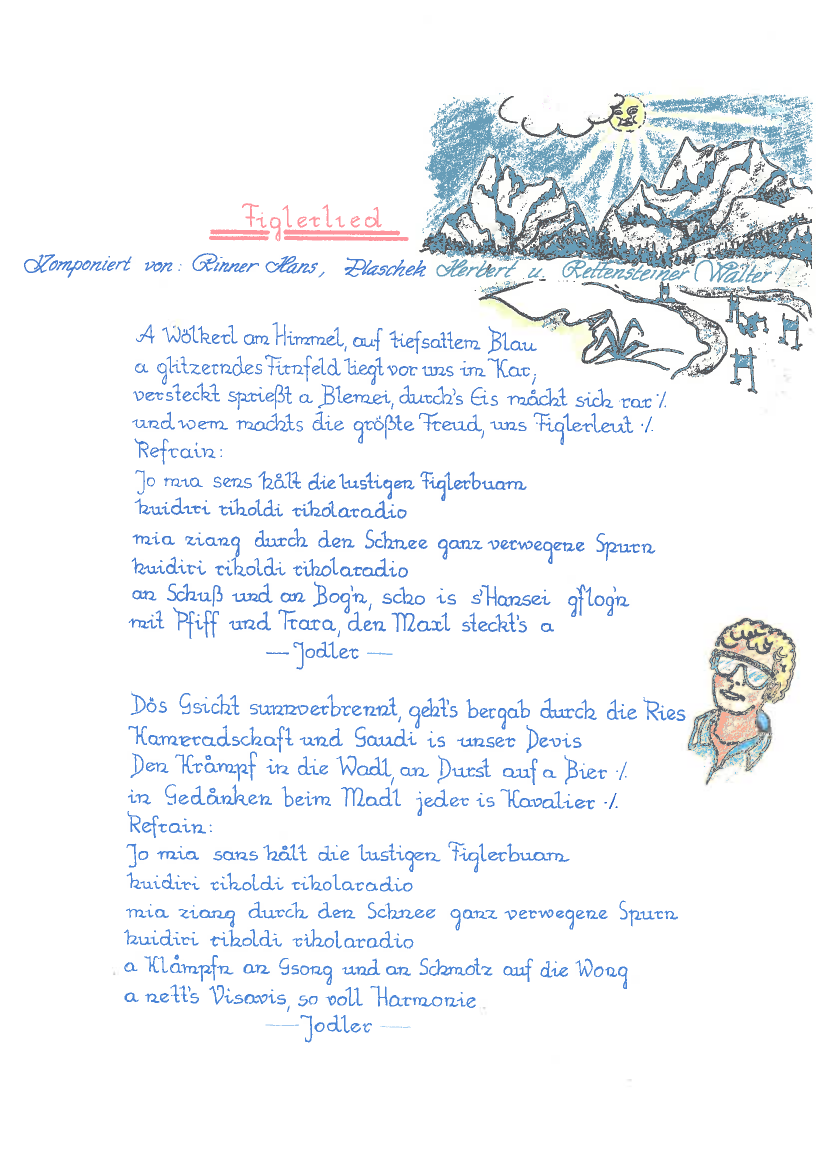 Figlerlied
Komponiert von: Rinner Hans, Plaschek Herbert u. Rettensteiner Walter!
A Wölkerl am Himmel, auf tiefsattem Blau
a glitzerndes Firnfeld liegt vor uns im Kar,
versteckt sprießt a Blemei, durch's Eis måcht sich rar ·/.
und wem machts die größte Freud, uns Figlerleut ·/.
Refrain:
Jo mia sens hålt die lustigen Figlerbuam
huidiri riholdi riholaradio
mia ziang durch den Schnee ganz verwegene Spurn
huidiri riholdi riholaradio
an Schuß und an Bog'n, scho is s'Hansei gflog'n
mit Pfiff und Trara, den Maxl steckt's a
— Jodler —
Dös Gsicht sunnverbrennt, geht's bergab durch die Ries
Kameradschaft und Gaudi is unser Devis
Den Kråmpf in die Wadl, an Durst auf a Bier ·/.
in Gedånken beim Madl jeder is Kavalier ·/.
Refrain:
Jo mia sans hålt die lustigen Figlerbuam
huidiri riholdi riholaradio
mia ziang durch den Schnee ganz verwegene Spurn
huidiri riholdi riholaradio
a Klåmpfn an Gsong und an Schmotz auf die Wong
a nett's Visavis, so voll Harmonie
— Jodler —